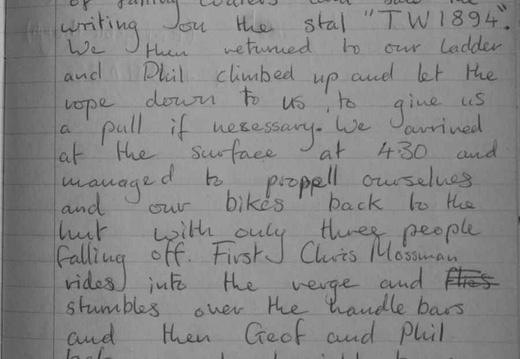 writing on the stal "TW1894".
We then returned to our ladder
and Phil climbed up and let the
rope down to us, to give us
a pull if nesessary. We arrived
at the surface at 430 and
managed to propell ourselves
and our bikes back to the
hut with only three people
falling off. First, Chris Mossman
rides into the verge and flies
stumbles over the handle bars
and then Geof and Phil